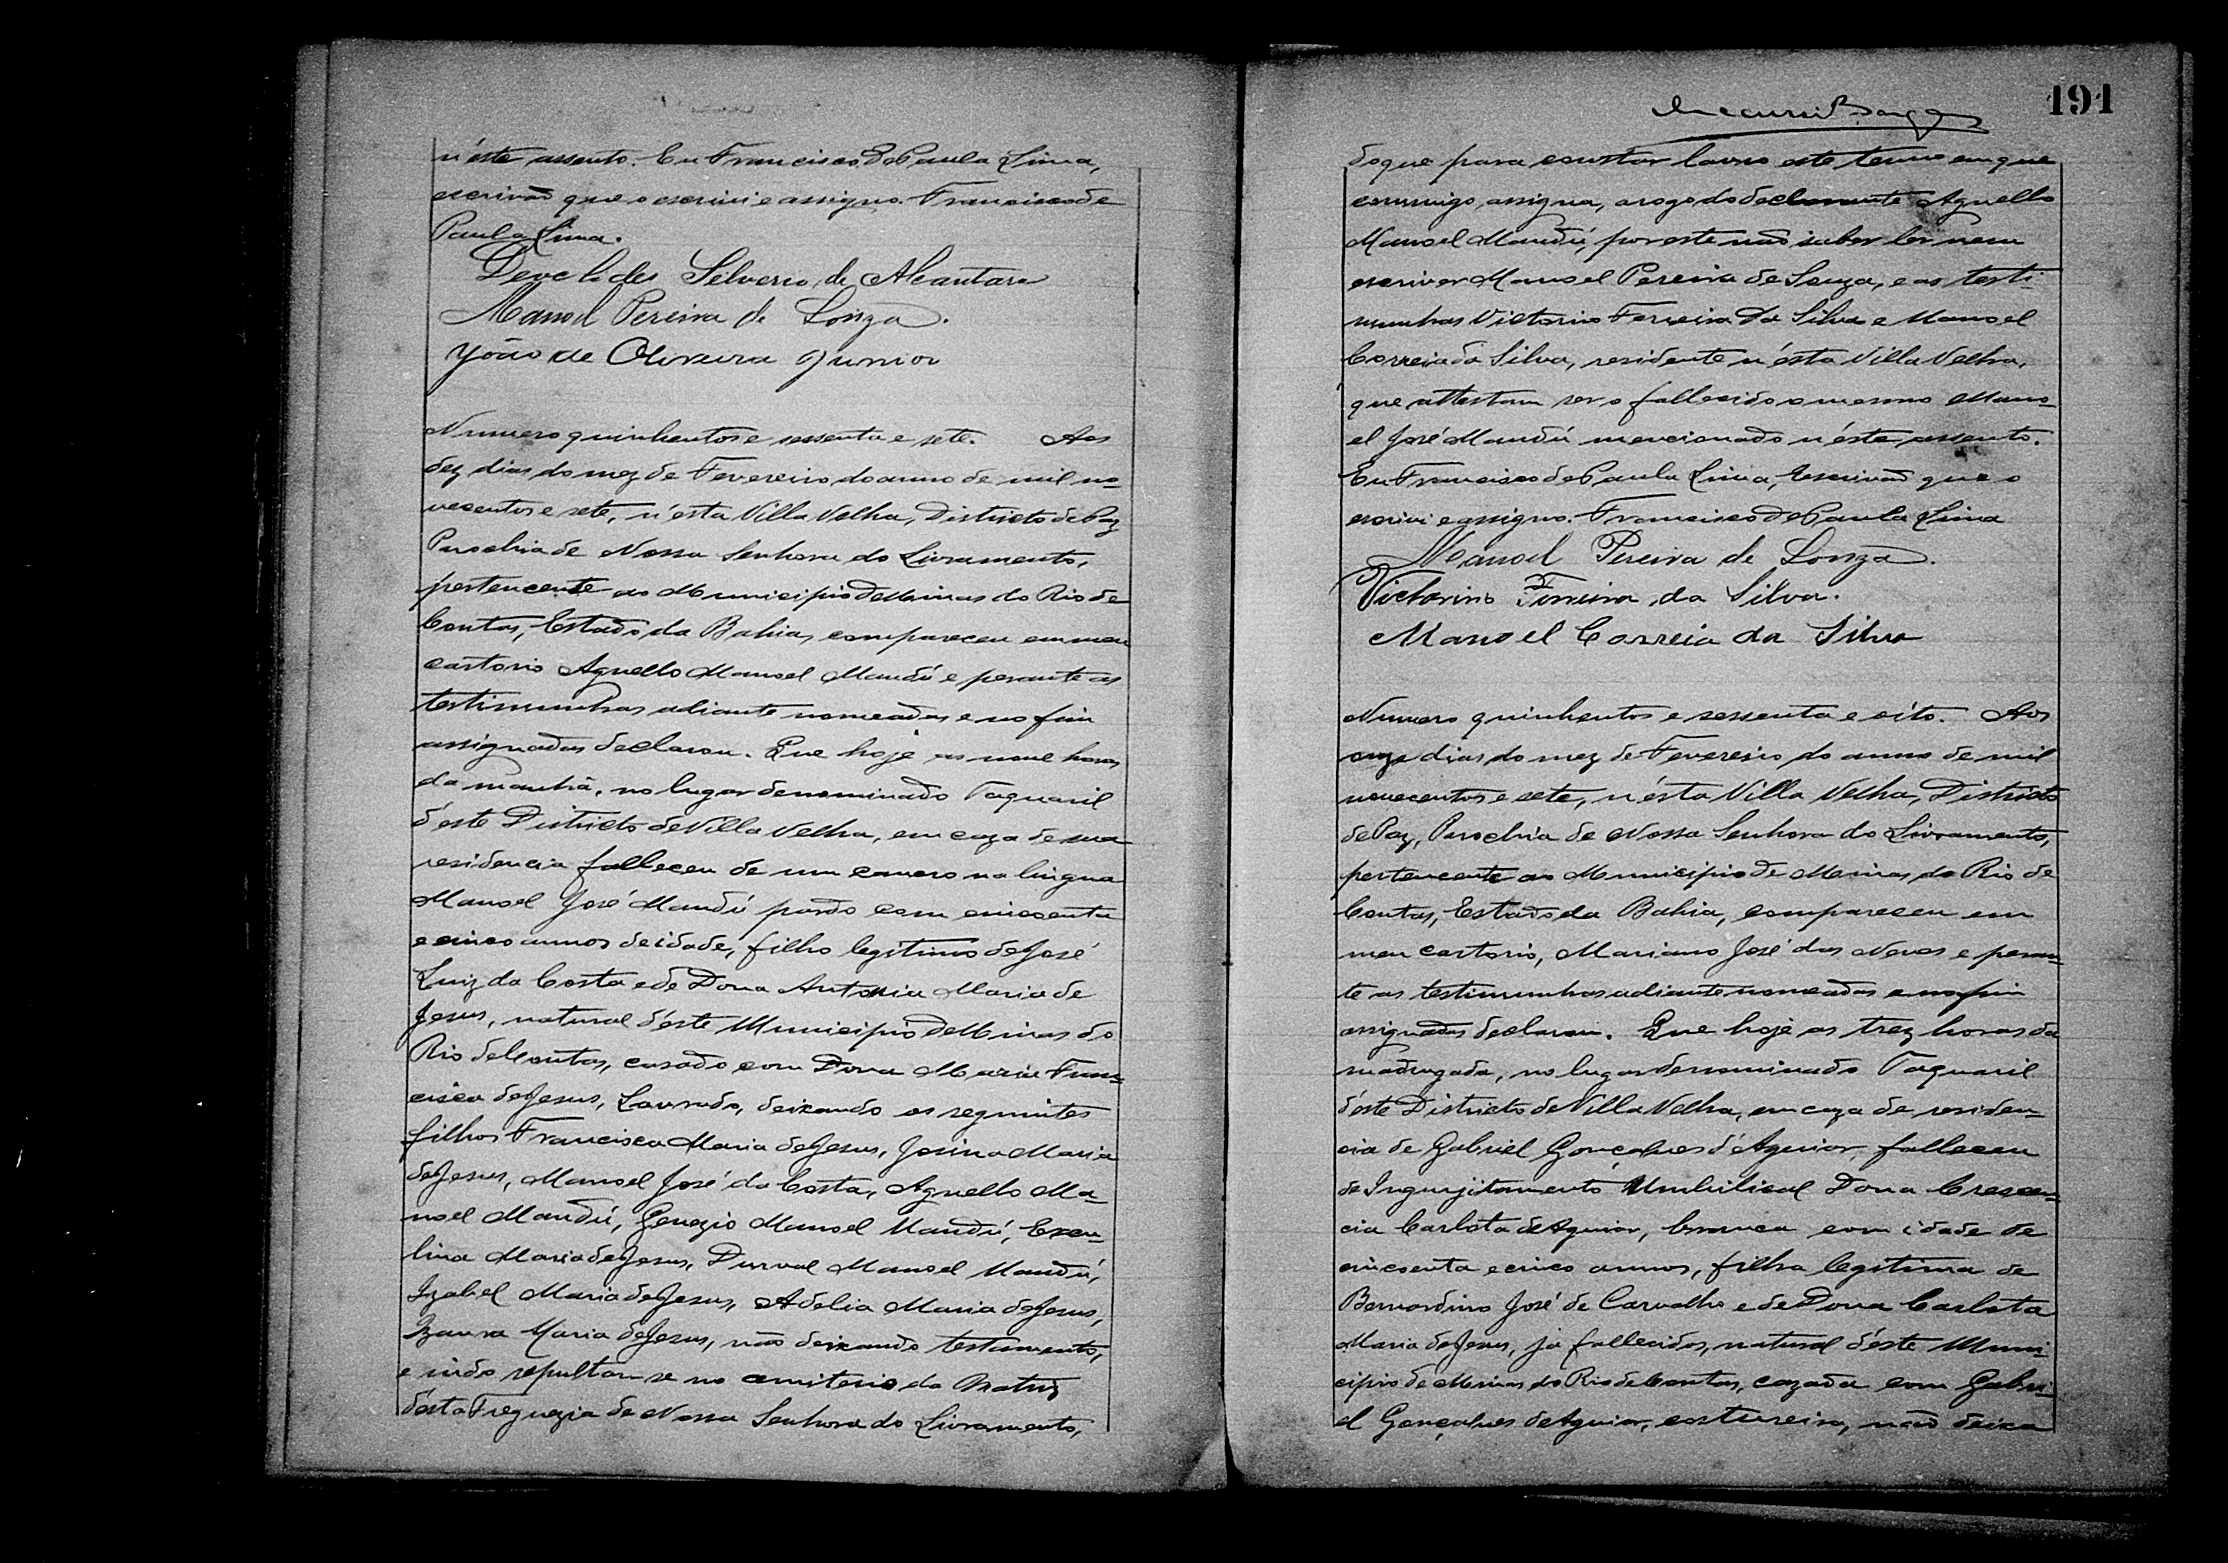 n'este assento. Eu Francisco de Paula Lima,
escrivão que o escrivi e assigno. Francisco de
Paula Lima.
Silverio de Alcantara
Manoel Pereira de Souza.
João de Oliveira Junior
Numero quinhentos e sessenta e sete. Aos
dez dias do mez de Fevereiro do anno de mil no-
vecentos e sete, n'esta Villa Velha, Districto de Paz
Parochia de Nossa Senhora do Livramento,
pertencente ao Municipio de Minas do Rio de
Contas, Estado da Bahia, compareceu em meu
cartorio Agnello Manoel Mandú e perante as
testimunhas adiante nomeadas e no fim
assignadas declarou. Que hoje as nove horas
da manhã, no lugar denominado Taquaril
d'este Districto de Villa Velha, em caza de sua
residencia falleceu de um cancro na lingua
Manoel José Mandú pardo com cincoenta
e cinco annos de idade, filho legitimo de José
Luiz da Costa e de Dona Antonia Maria de
Jesus, natural d'este Municipio de Minas do
Rio de Contas, casado com Dona Maria Fran-
cisca de Jesus, Lavrado, deixando os seguintes
filhos Francisca Maria de Jesus, Josina Maria
de Jesus, Manoel José da Costa, Agnello Ma-
noel Mandú, Genezio Manoel Mandú,
lina Maria de Jesus, Durval Manoel Mandú,
Izabel Maria de Jesus, Adelia Maria de Jesus,
Izaura Maria de Jesus, não deixando testamento,
e indo sepultar-se no cemiterio da Matriz
d'esta Freguezia de Nossa Senhora do Livramento,
191
do que para constar lavro este termo em que
commigo assigna, a rogo do declarante Agnello
Manoel Mandú, por este não saber ler nem
escriver Manoel Pereira de Souza, e as testi-
munhas Victorino Ferreira da Silva e Manoel
Correia da Silva, residente n'ésta Villa Velha,
que attestam ser o fallecido o mesmo Mano-
el José Mandú mencionado n'éste assento.
Eu Francisco de Paula Lima, Escrivão que o
escrivi e assigno. Francisco de Paula Lima
Manoel Pereira de Souza.
Victorino Ferreira da Silva.
Manoel Correia da Silva
Numero quinhentos e sessenta e oito. Aos
onze dias do mez de Fevereiro do anno de mil
novecentos e sete, n'ésta Villa Velha, Districto
de Paz, Parochia de Nossa Senhora do Livramento,
pertencente ao Municipio de Minas do Rio de
Contas, Estado da Bahia, compareceu em
meu cartorio, Mariano José das Neves e peran-
te as testimunhas adiante nomeadas e no fim
assignadas declarou. Que hoje as trez horas da
madrugada, no lugar denominado Taquaril
d'éste Districto de Villa Velha, em caza de residen-
cia de Gabriel Gonçalves d'Aguiar, falleceu
de Ingurjitamento Umbilical Dona Crescen-
cia Carlota de Aguiar, branca com idade de
cincoenta e cinco annos, filha legitima de
Bernardino José de Carvalho e de Dona Carlota
Maria de Jesus, ja fallecidos, natural d'éste Muni-
cipio de Minas do Rio de Contas, cazada com Gabri-
el Gonçalves de Aguiar, costureira, não deixa